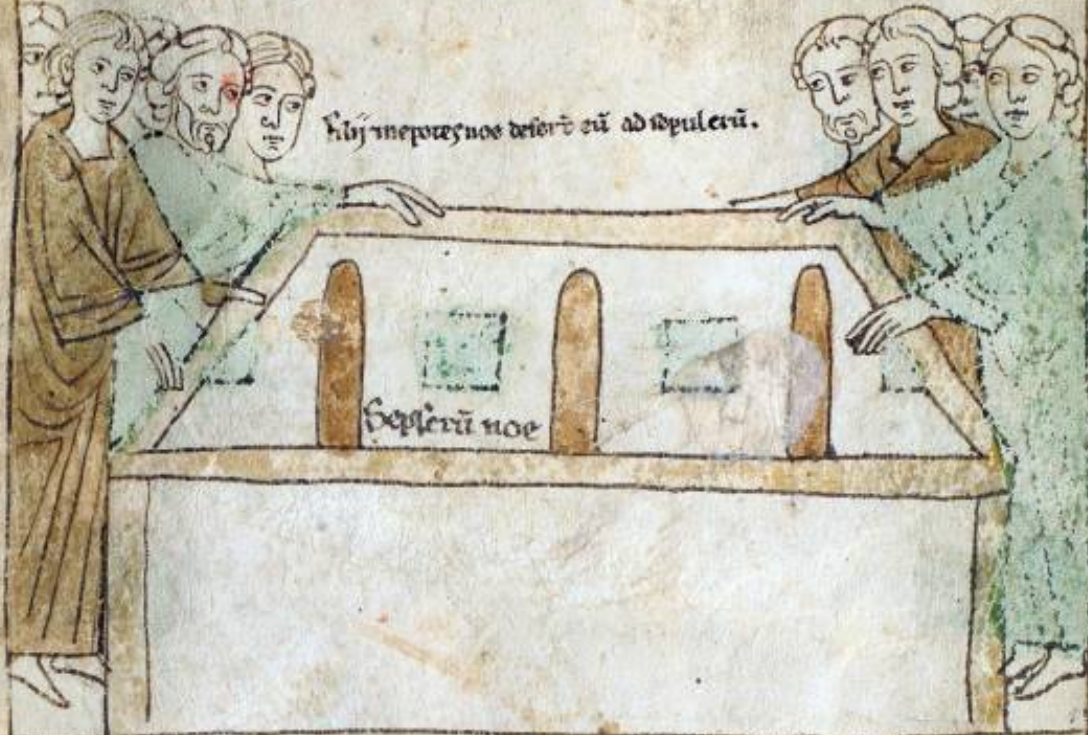 Filij ⁊ nepotes noe defert̄ eū ad sepulcrū.
Sepłcrū noe